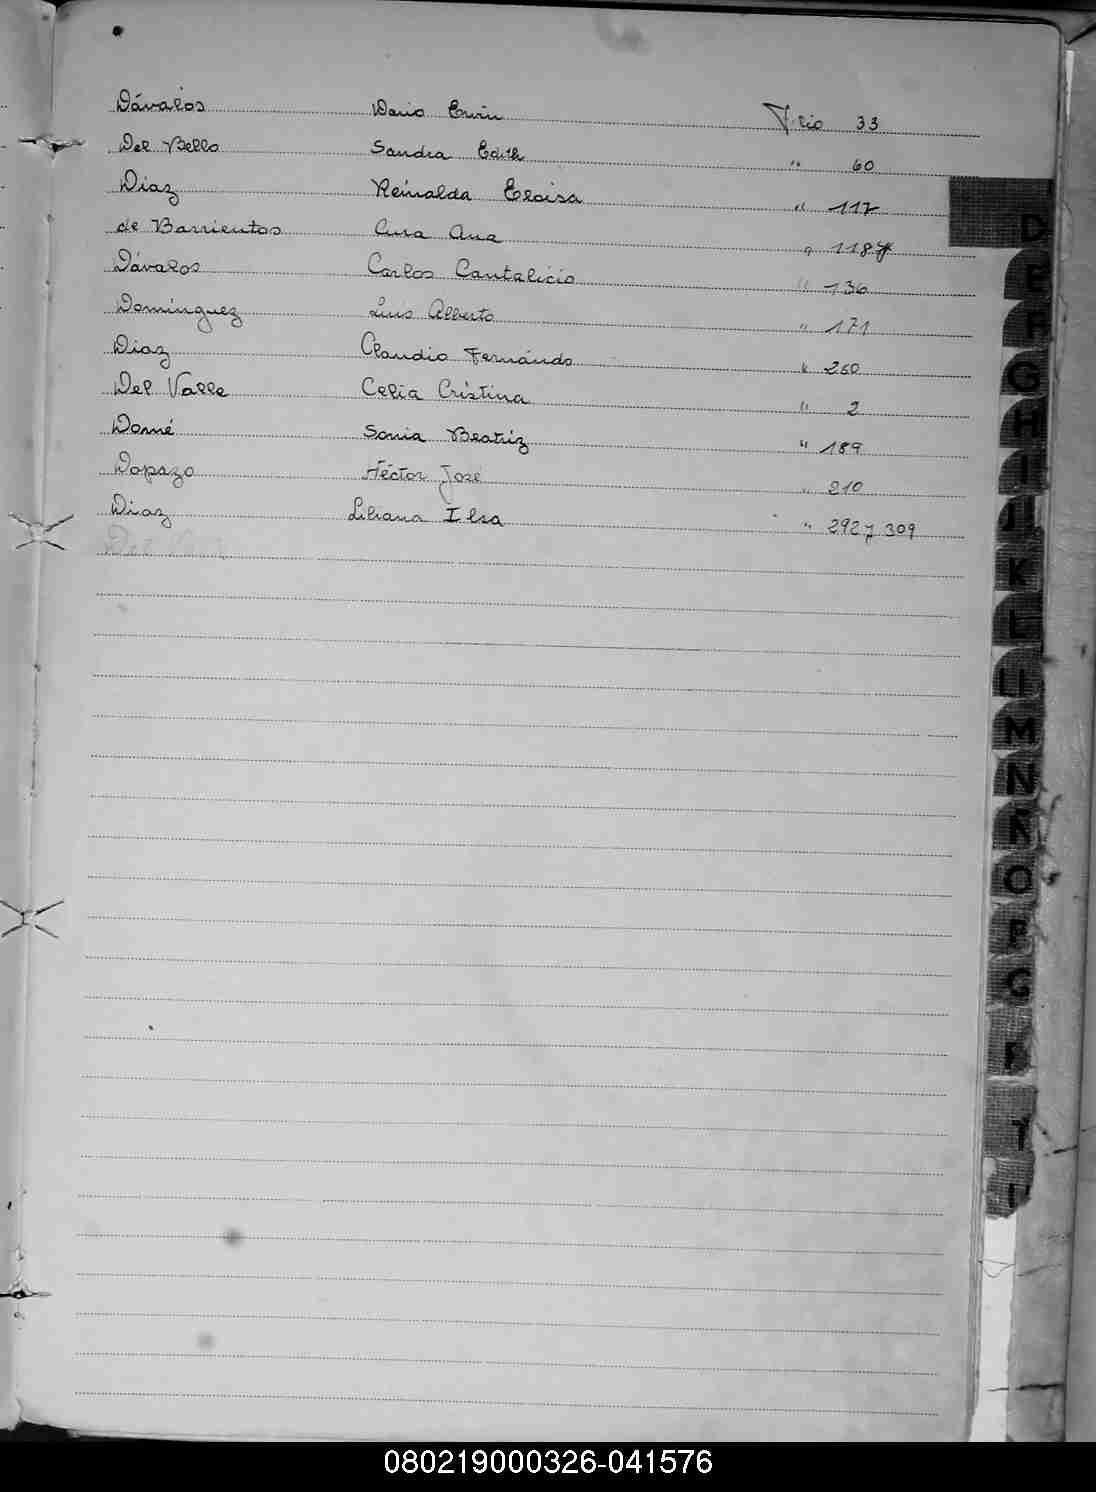 Dávalos Dario Erwin Flio 33
Del Bello Sandra Edith " 60
Diaz Reinalda Eloisa " 117
de Barrientos Ana " 118
Dávalos Carlos Cantalicio " 136
Domínguez Luis Alberto " 171
Diaz Claudio Fernando " 260
Del Valle Celia Cristina " 2
Domé Sonia Beatriz " 189
Dopazo Héctor José " 210
Diaz Liliana Ilsa " 292 y 309
Del
D
E
F
G
H
I
J
K
L
LL
M
N
Ñ
O
P
Q
R
T
U
080219000326-041576